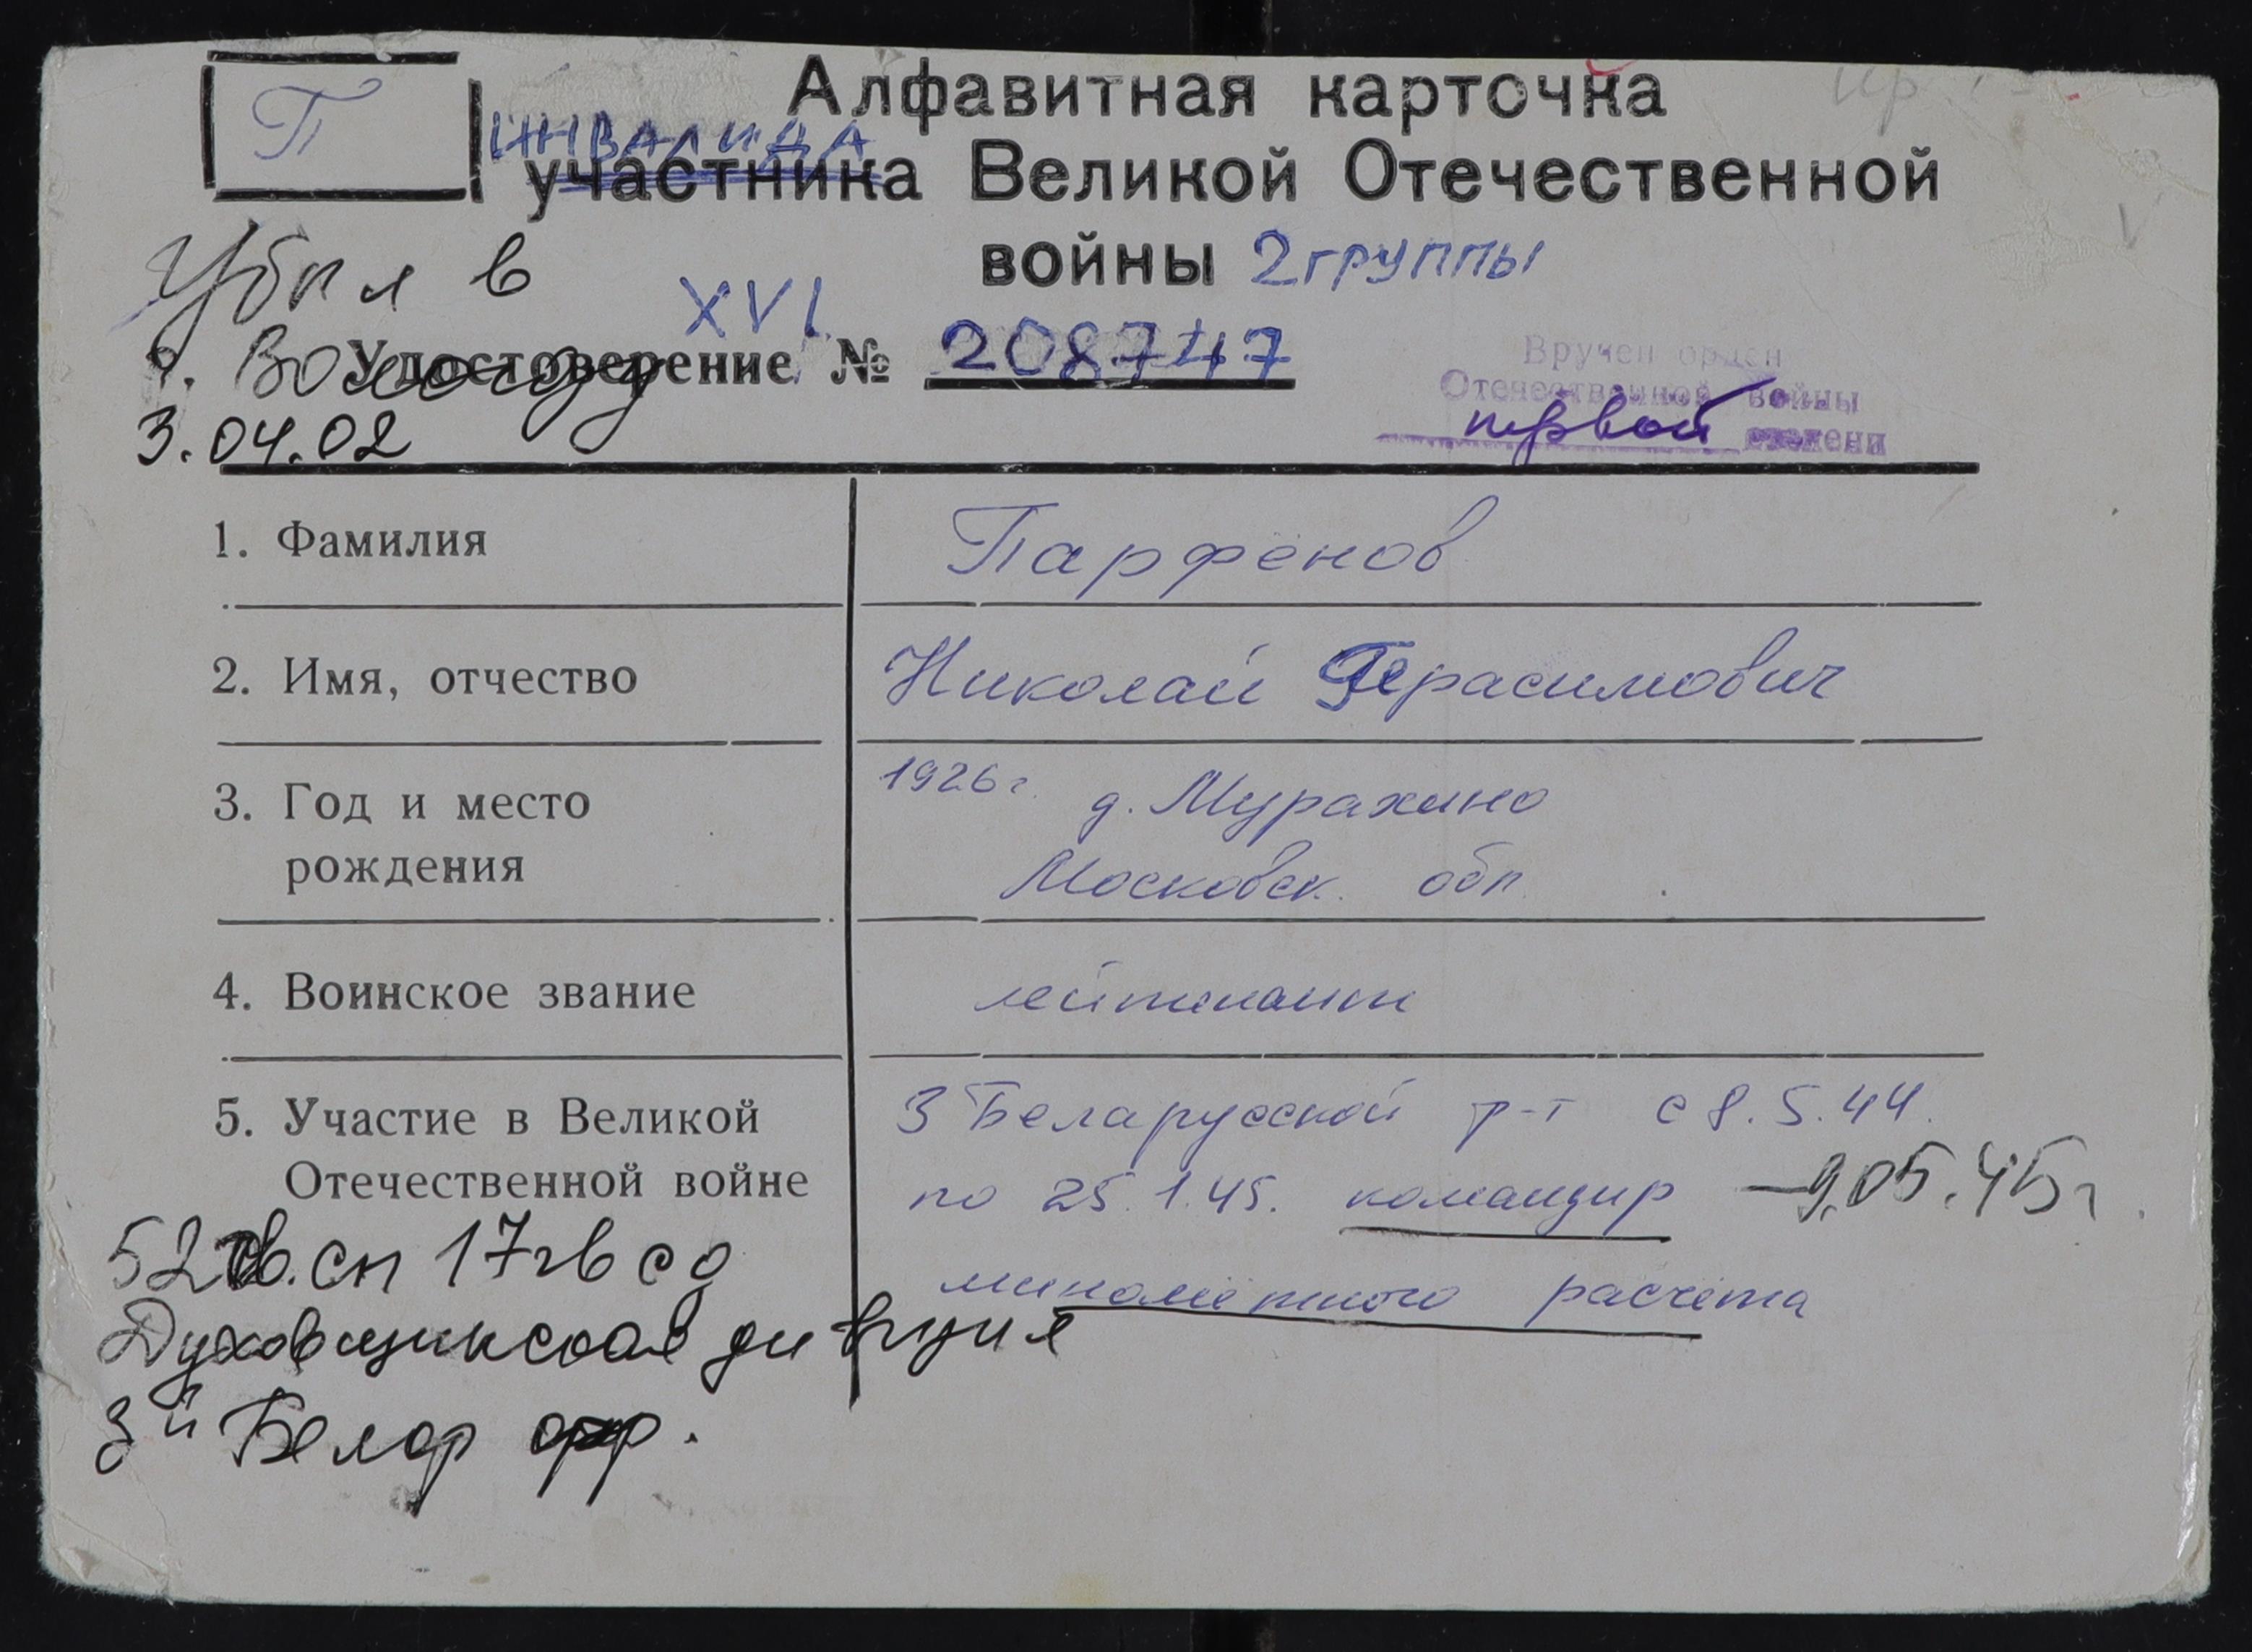 П
Алфавитная карточка
ИНВАЛИДА
участника Великой Отечественной
войны 2 группы
Убыл в
г. Вологду
3.04.02
XVI
Удостоверение № 208747
Вручен орден
Отечественной войны
первой степени
1. Фамилия
Парфёнов
2. Имя, отчество
Николай Герасимович
3. Год и место
рождения
1926 г. д. Мурахино
Московск. обл
4. Воинское звание
лейтенант
5. Участие в Великой
Отечественной войне
3 Беларусской ф-т с 8.5.44.
по 25.1.45. командир – 9.05.45г.
миномётного расчёта
52 гв. сп 17 гв сд
Духовщинская дивизия
3й Белор фр.